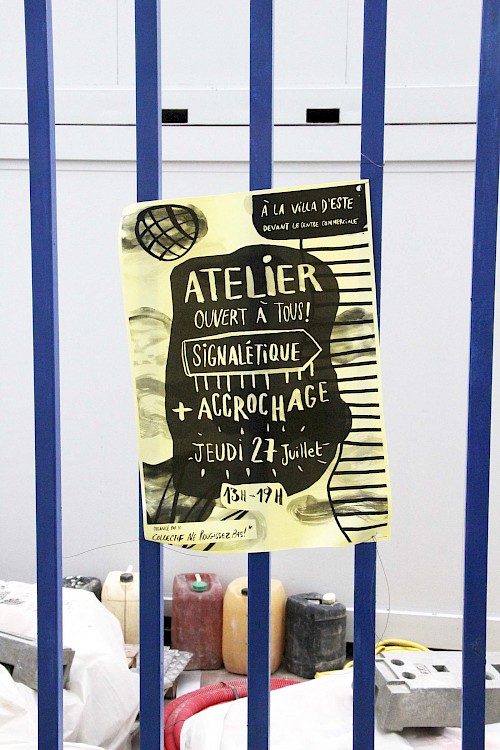 À LA VILLA D'ESTE
DEVANT LE CENTRE COMMERCIALE
ATELIER
OUVERT À TOUS!
SIGNALÉTIQUE
+ ACCROCHAGE
JEUDI 27 Juillet
13H-19H
ORGANISÉ PAR LE
COLLECTIF NE ROUGISSEZ PAS!